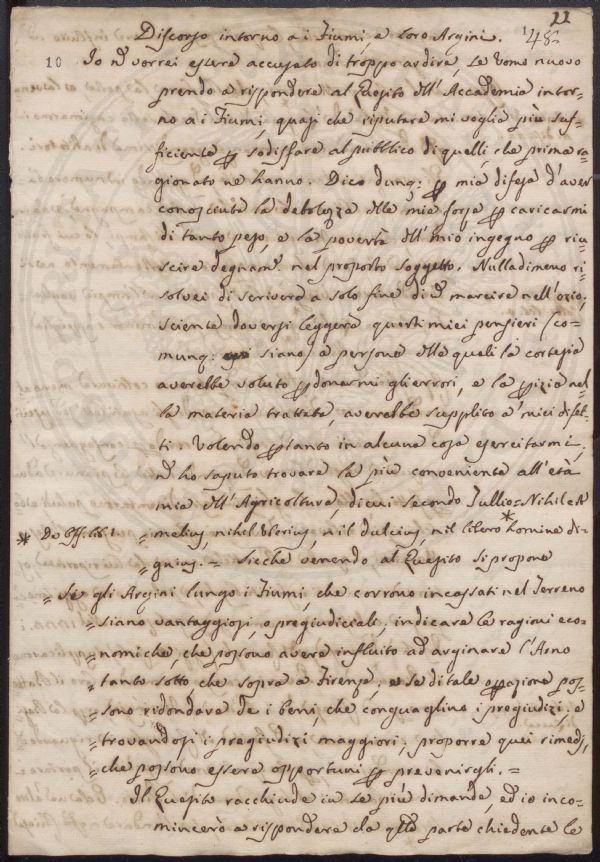 22
148
Discorso intorno a i Fiumi, e loro Argini.
10 Io nõ vorrei essere accusato di troppo ardire, se Uomo nuovo
prendo a rispondere al Quesito dell' Accademia intor-
no a i Fiumi, quasi che riputare mi voglia più suf-
ficiente per sodisfare al pubblico di quelli, che prima ra-
gionato ne hanno. Dico dunq: per mia difesa d'aver
conosciuta la debolezza delle mie forze per caricarmi
di tanto peso, e la povertà dell' mio ingegno per riu-
scire degnam. nel proposto soggetto. Nulladimeno ri-
solvei di scriverd a solo fine di nõ marcire nell'ozio,
sciente doversi leggere questi miei pensieri (co-
munq: siano) a persone delle quali la cortesia
averebbe voluto perdonarmi gli errori, e la perizia nel-
la materia trattata, averebbe supplito a' miei difet-
ti. Volendo pertanto in alcuna cosa esercitarmi,
nõ ho saputo trovare la più conveniente all'età
mia dell' Agricoltura, di cui secondo Tullio = Nihil e
* De off. lib. 1 = melius, nihil Uberius, nil dulcius, nil libero * homine di-
= gnius. = Sicchè venendo al Quesito si propone
= Se gli Argini lungo i Fiumi, che corrono incassati nel Terreno
= siano vantaggiosi, o pregiudiciali; indicare le ragioni eco-
= nomiche, che possono avere influito ad arginare l'Arno
= tanto sotto, che sopra a Firenze; e se di tale operazione pos-
= sono ridondare de i beni, che conguaglino i pregiudizi; e
= trovandosi i pregiudizi maggiori, proporre quei rimedj,
= che possono essere opportuni per prevenirgli. =
Il Quesito racchiude in se più dimande, ed io inco-
mincerò a rispondere da qlla parte chiedente le